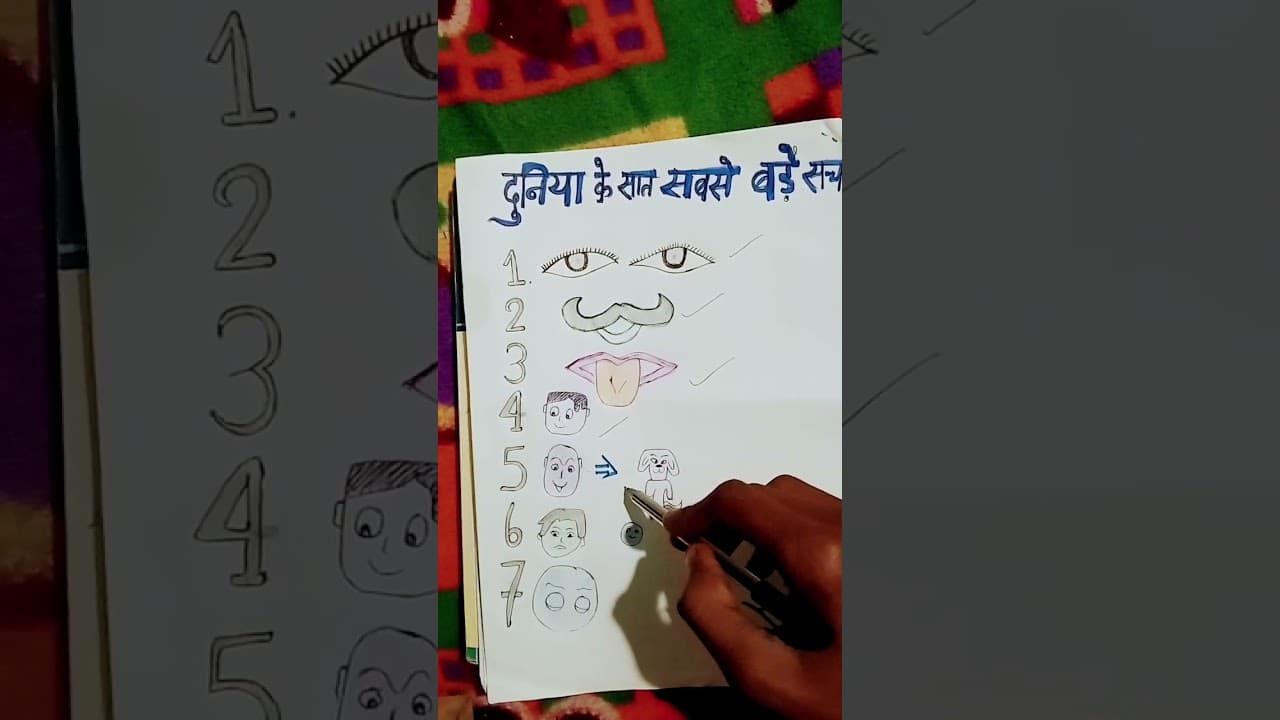 दुनिया के सात सबसे बड़ें सच
1.
2
3
4
5 ⇒
6
7